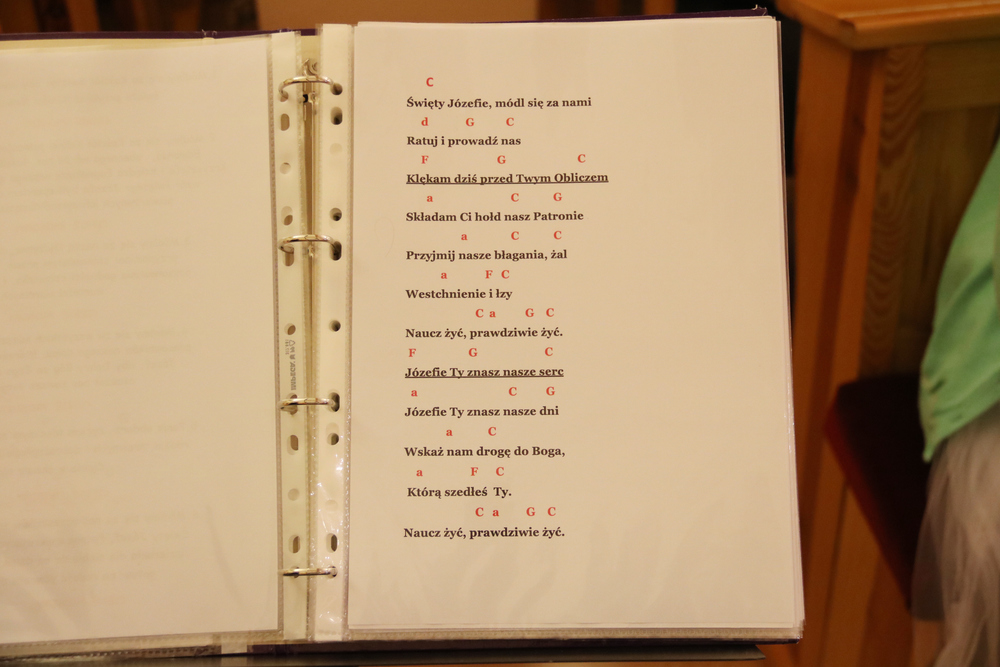 C
Święty Józefie, módl się za nami
d G C
Ratuj i prowadź nas
F G C
Klękam dziś przed Twym Obliczem
a C G
Składam Ci hołd nasz Patronie
a C C
Przyjmij nasze błagania, żal
a F C
Westchnienie i łzy
C a G C
Naucz żyć, prawdziwie żyć.
F G C
Józefie Ty znasz nasze serc
a C G
Józefie Ty znasz nasze dni
a C
Wskaż nam drogę do Boga,
a F C
Którą szedłeś Ty.
C a G C
Naucz żyć, prawdziwie żyć.